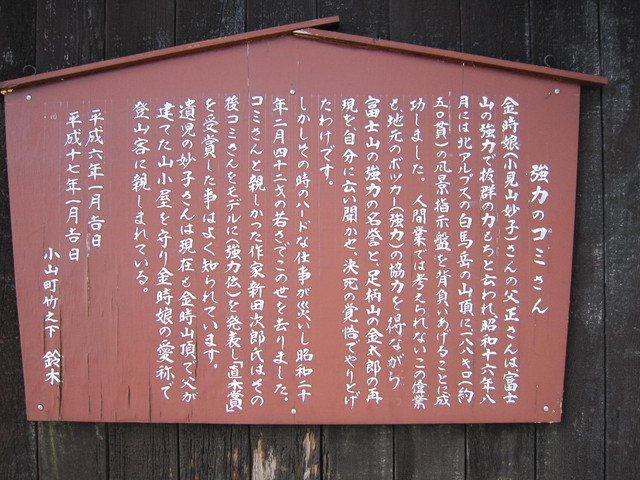 強力のゴミさん
金時娘(小見山妙子)さんの父正さんは「富士
山の強力で抜群の力もちと云われ、昭和十六年八
月には北アルプスの白馬岳の山頂に一八八キロ(約
五〇貫)の風景指示盤を背負いあげることに成
功しました。人間業では考えられないこの偉業
も、地元のボッカー(強力)の協力を得ながら
富士山の強力の名誉と、足柄山の金太郎の再
現を自分に云い聞かせ、決死の覚悟でやりとげ
たわけです。
しかしその時のハードな仕事が災いし昭和二十
年二月四十二才の若さでこの世を去りました。
コミさんと親しかった作家新田次郎氏はその
後コミさんをモデルに(強力伝)を発表し「直木賞」
を受賞した事はよく知られています。
遺児の妙子さんは現在も金時山頂で父が
建てた山小屋を守り金時娘の愛称で
登山客に親しまれている。
平成六年一月吉日
平成十七年一月吉日
小山町竹之下 鈴木